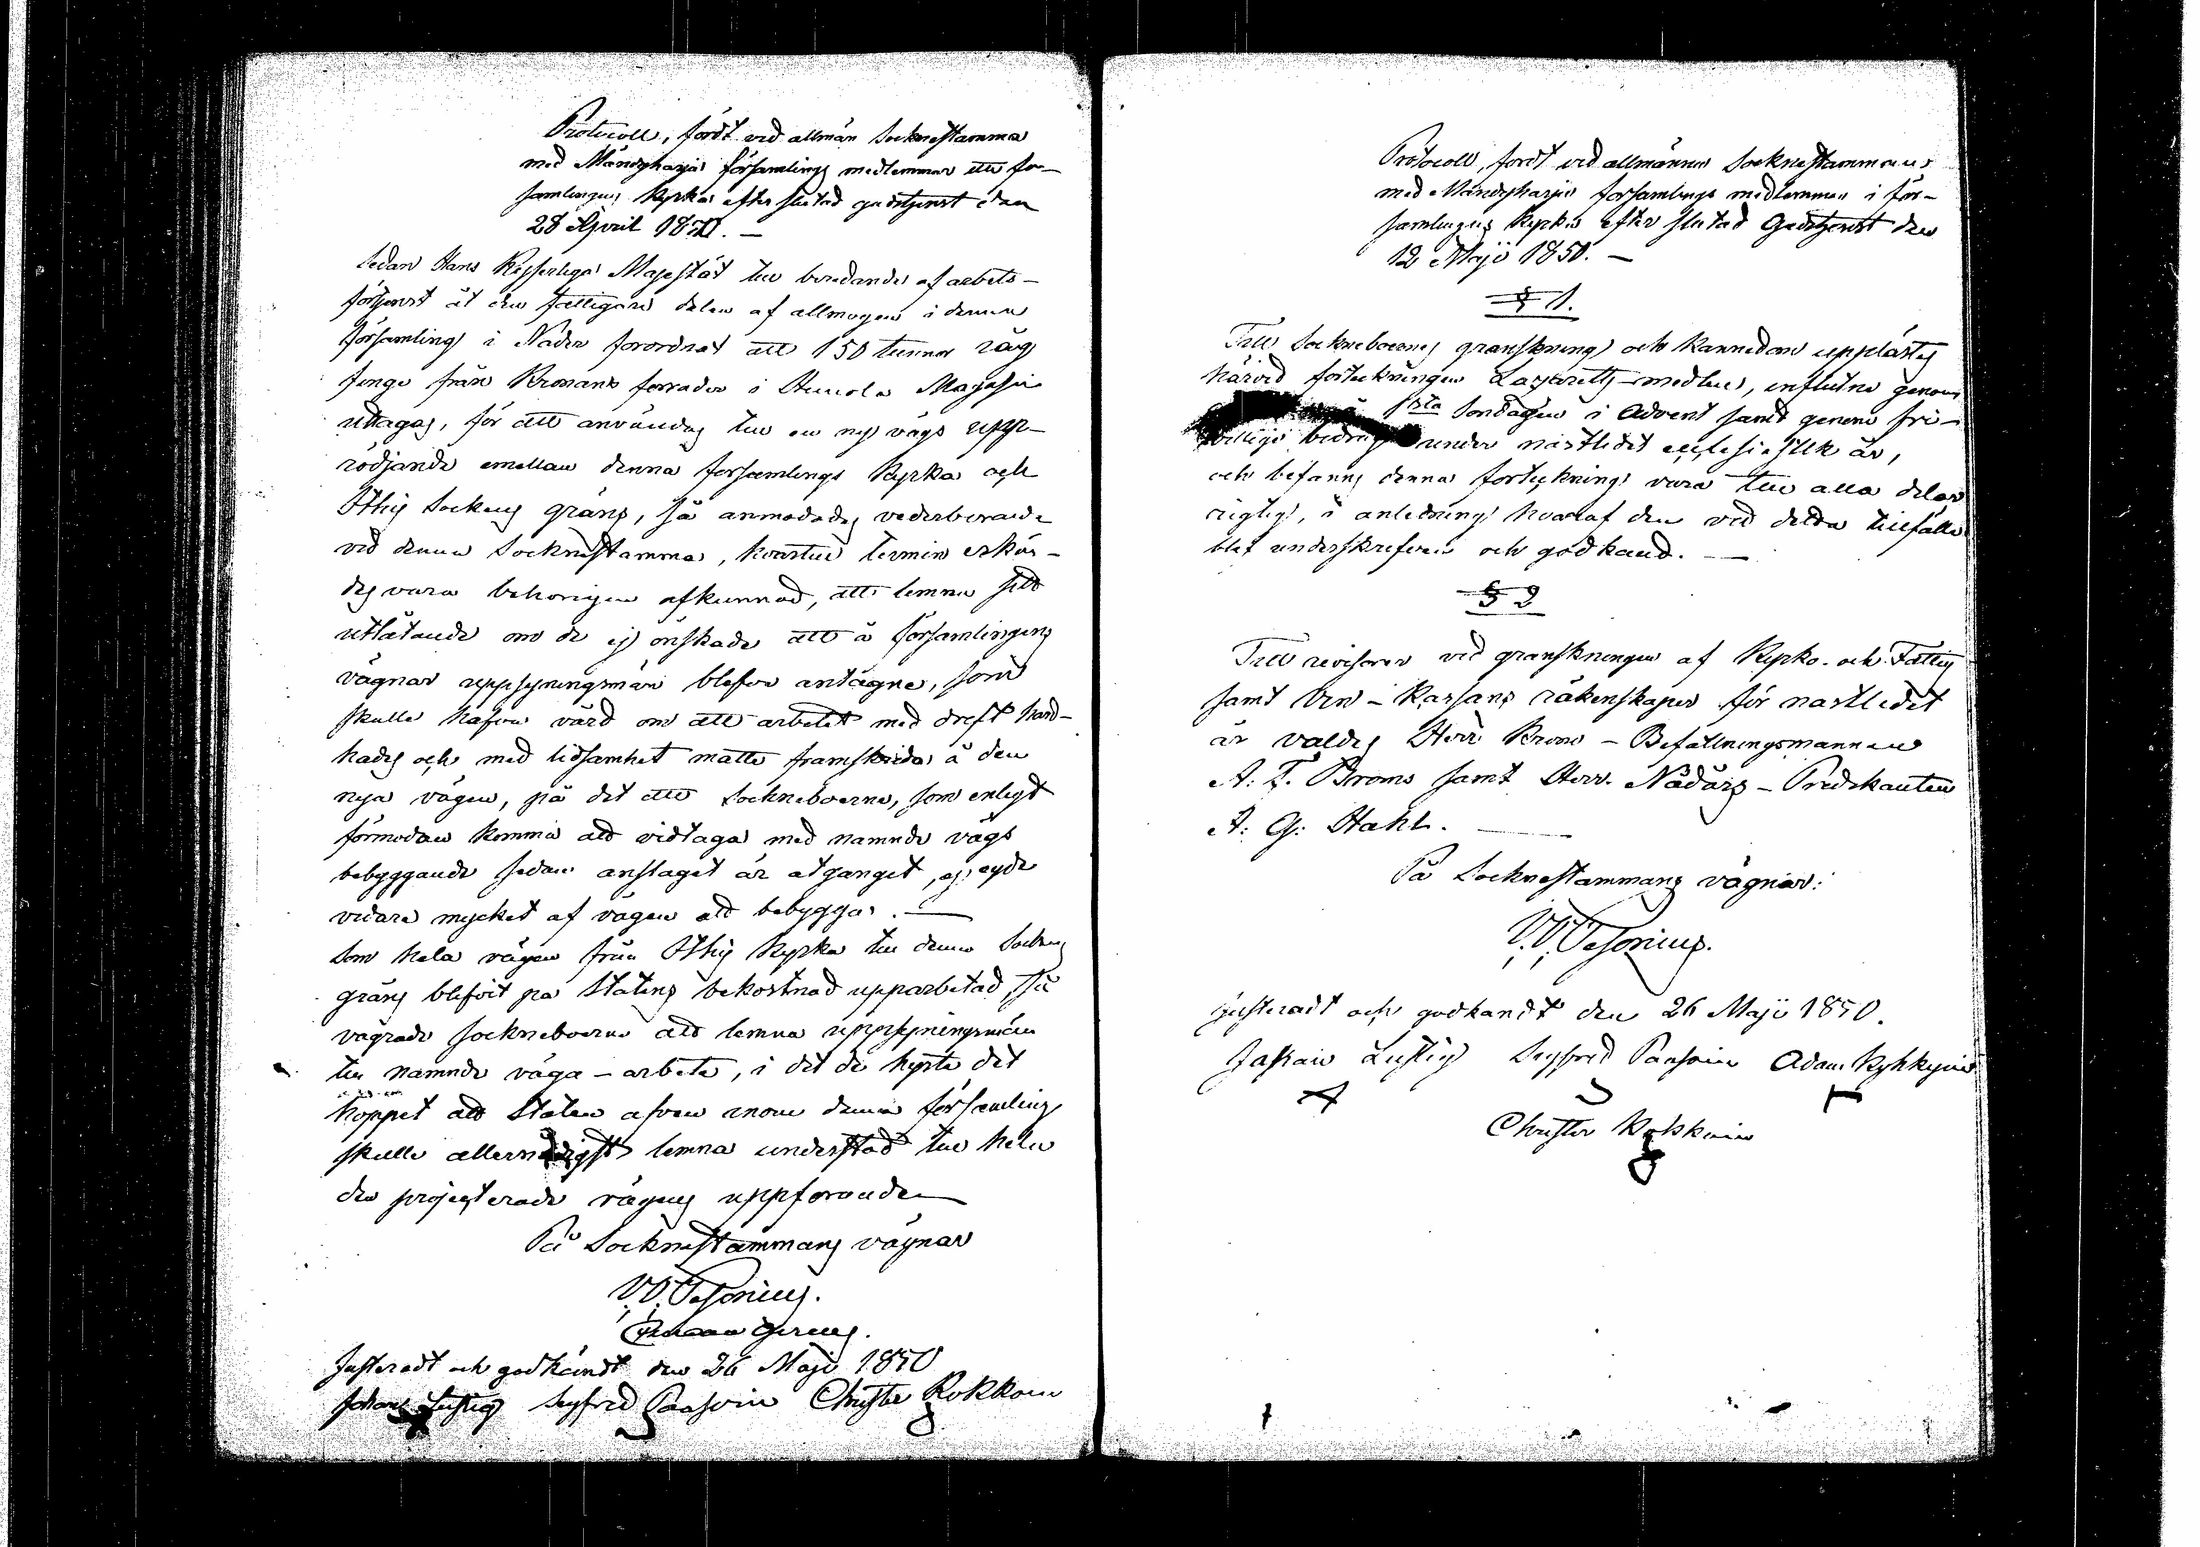 Protocoll, fördt vid allmän Socknestamma
med Mändyharju församlings medlemmar uti för-
samlingens Kyrka efter slutad gudstjenst den
28 April 1850. —
Sedan Hans Kejserliga Majestät till beredande af arbets-
förtjenst åt den fattigare delen af allmogen i denna
församling i Nåder förordnat att 150 tunnor råg
finge från Kronans förråder i Heinola Magasin
uttagas, för att användas till en ny vägs upp-
rödjande emellan denna församlings Kyrka och
Itthis Sockens gräns, så anmodades vederbörande
vid denna Socknestamma, hvartill termin erkän-
des vara behörigen afkunnad, att lemna sitt
utlåtande om de ej önskade att å församlingens
vägnar uppsyningsmän blefve antagne, som
skulle hafva vård om att arbetet med drift hand-
hades och med lidsamhet måtte framskrida å den
nya vägen, på det att Sockneboerne, som enligt
förmodan komma att vidtaga med nämnde vägs
bebyggande sedan anslaget är åtgånget, ej egde
vidare mycket af vägen att bebygga. —
Som hela vägen från Itthis Kyrka till denna Sockens
gräns blifvit på Statens bekostnad upparbetad, så
vägrade sockneboerne att lemna uppsyningsmän
till nämnde väga-arbete, i det de hyste det
hoppet att Staten äfven inom denna församling
skulle allernådigst lemna understöd till hela
den projecterade vägens uppförande
På Socknestammans vägnar
W. Wesonius.
Justeradt och godkändt den 26 Maji 1850
Johan Lustig Sigfred Paasoin Christer Kokkoin
Protocoll, fördt vid allmänna Socknestammans
med Mändyharju församlings medlemmar i för-
samlingens Kyrka efter slutad Gudstjenst den
12 Maji 1850. —
§ 1.
Till Sockneboernes granskning och kännedom upplästes
härvid förteckningen Lazaretts-medlen, influtne genom
1sta Söndagen i Advent samt genom fri-
villiga bidrag under nästledet ecclesiastik år,
och befanns denna förteckning vara till alla delar
rigtig, i anledning hvaraf den vid detta tillfälle
blef underskrifven och godkänd. —
§ 2
Till revisorer vid granskningen af Kyrko- och Fattig
samt Vin-Kassans räkenskaper för nästledet
år valdes Herr Krono-Befallningsmannen
A: F. Broms samt Herr Nådårs-Predikanten
A: G: Stahl. —
På Socknestammans vägnar:
W. Wesonius.
Justeradt och godkändt den 26 Maji 1850.
Johan Lustig Sigfred Paasoin Adam Kykkyin
Christer Kokkoin